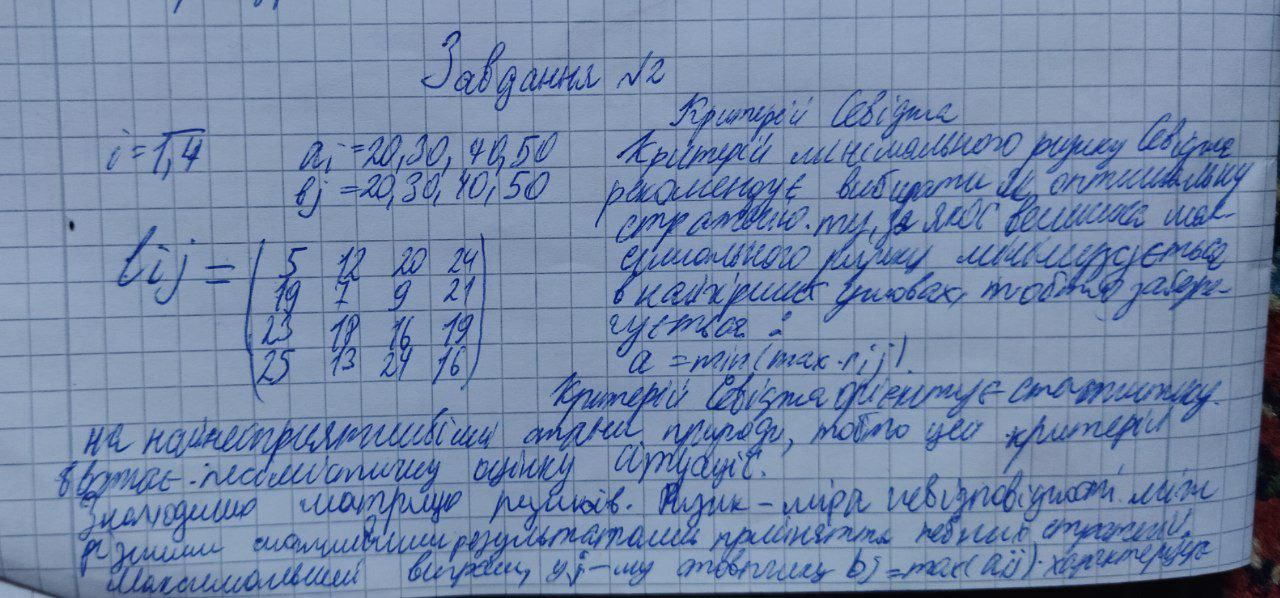 Завдання №2
Критерій Севіджа
i=1,4 ai=20,30,40,50 Критерій мінімального ризику Севіджа
bj=20,30,40,50 рекомендує вибирати як оптимальну
стратегію ту, за якої величина мак-
lij = ( 5 12 20 24 ) симального ризику мінімізується
19 7 9 21 в найгірших умовах, тобто забезпе-
23 18 16 19 чується:
25 13 24 16 a = min(max rij)
Критерій Севіджа орієнтує статистику
на найнесприятливіші стани природи, тобто цей критерій
песимістичну оцінку ситуації.
Знаходимо матрицю ризиків. Ризик – міра невідповідності між
різними можливими результатами прийняття певних стратегій.
Максимальний виграш у j-му стовпчику bj = max(aij) характеризує